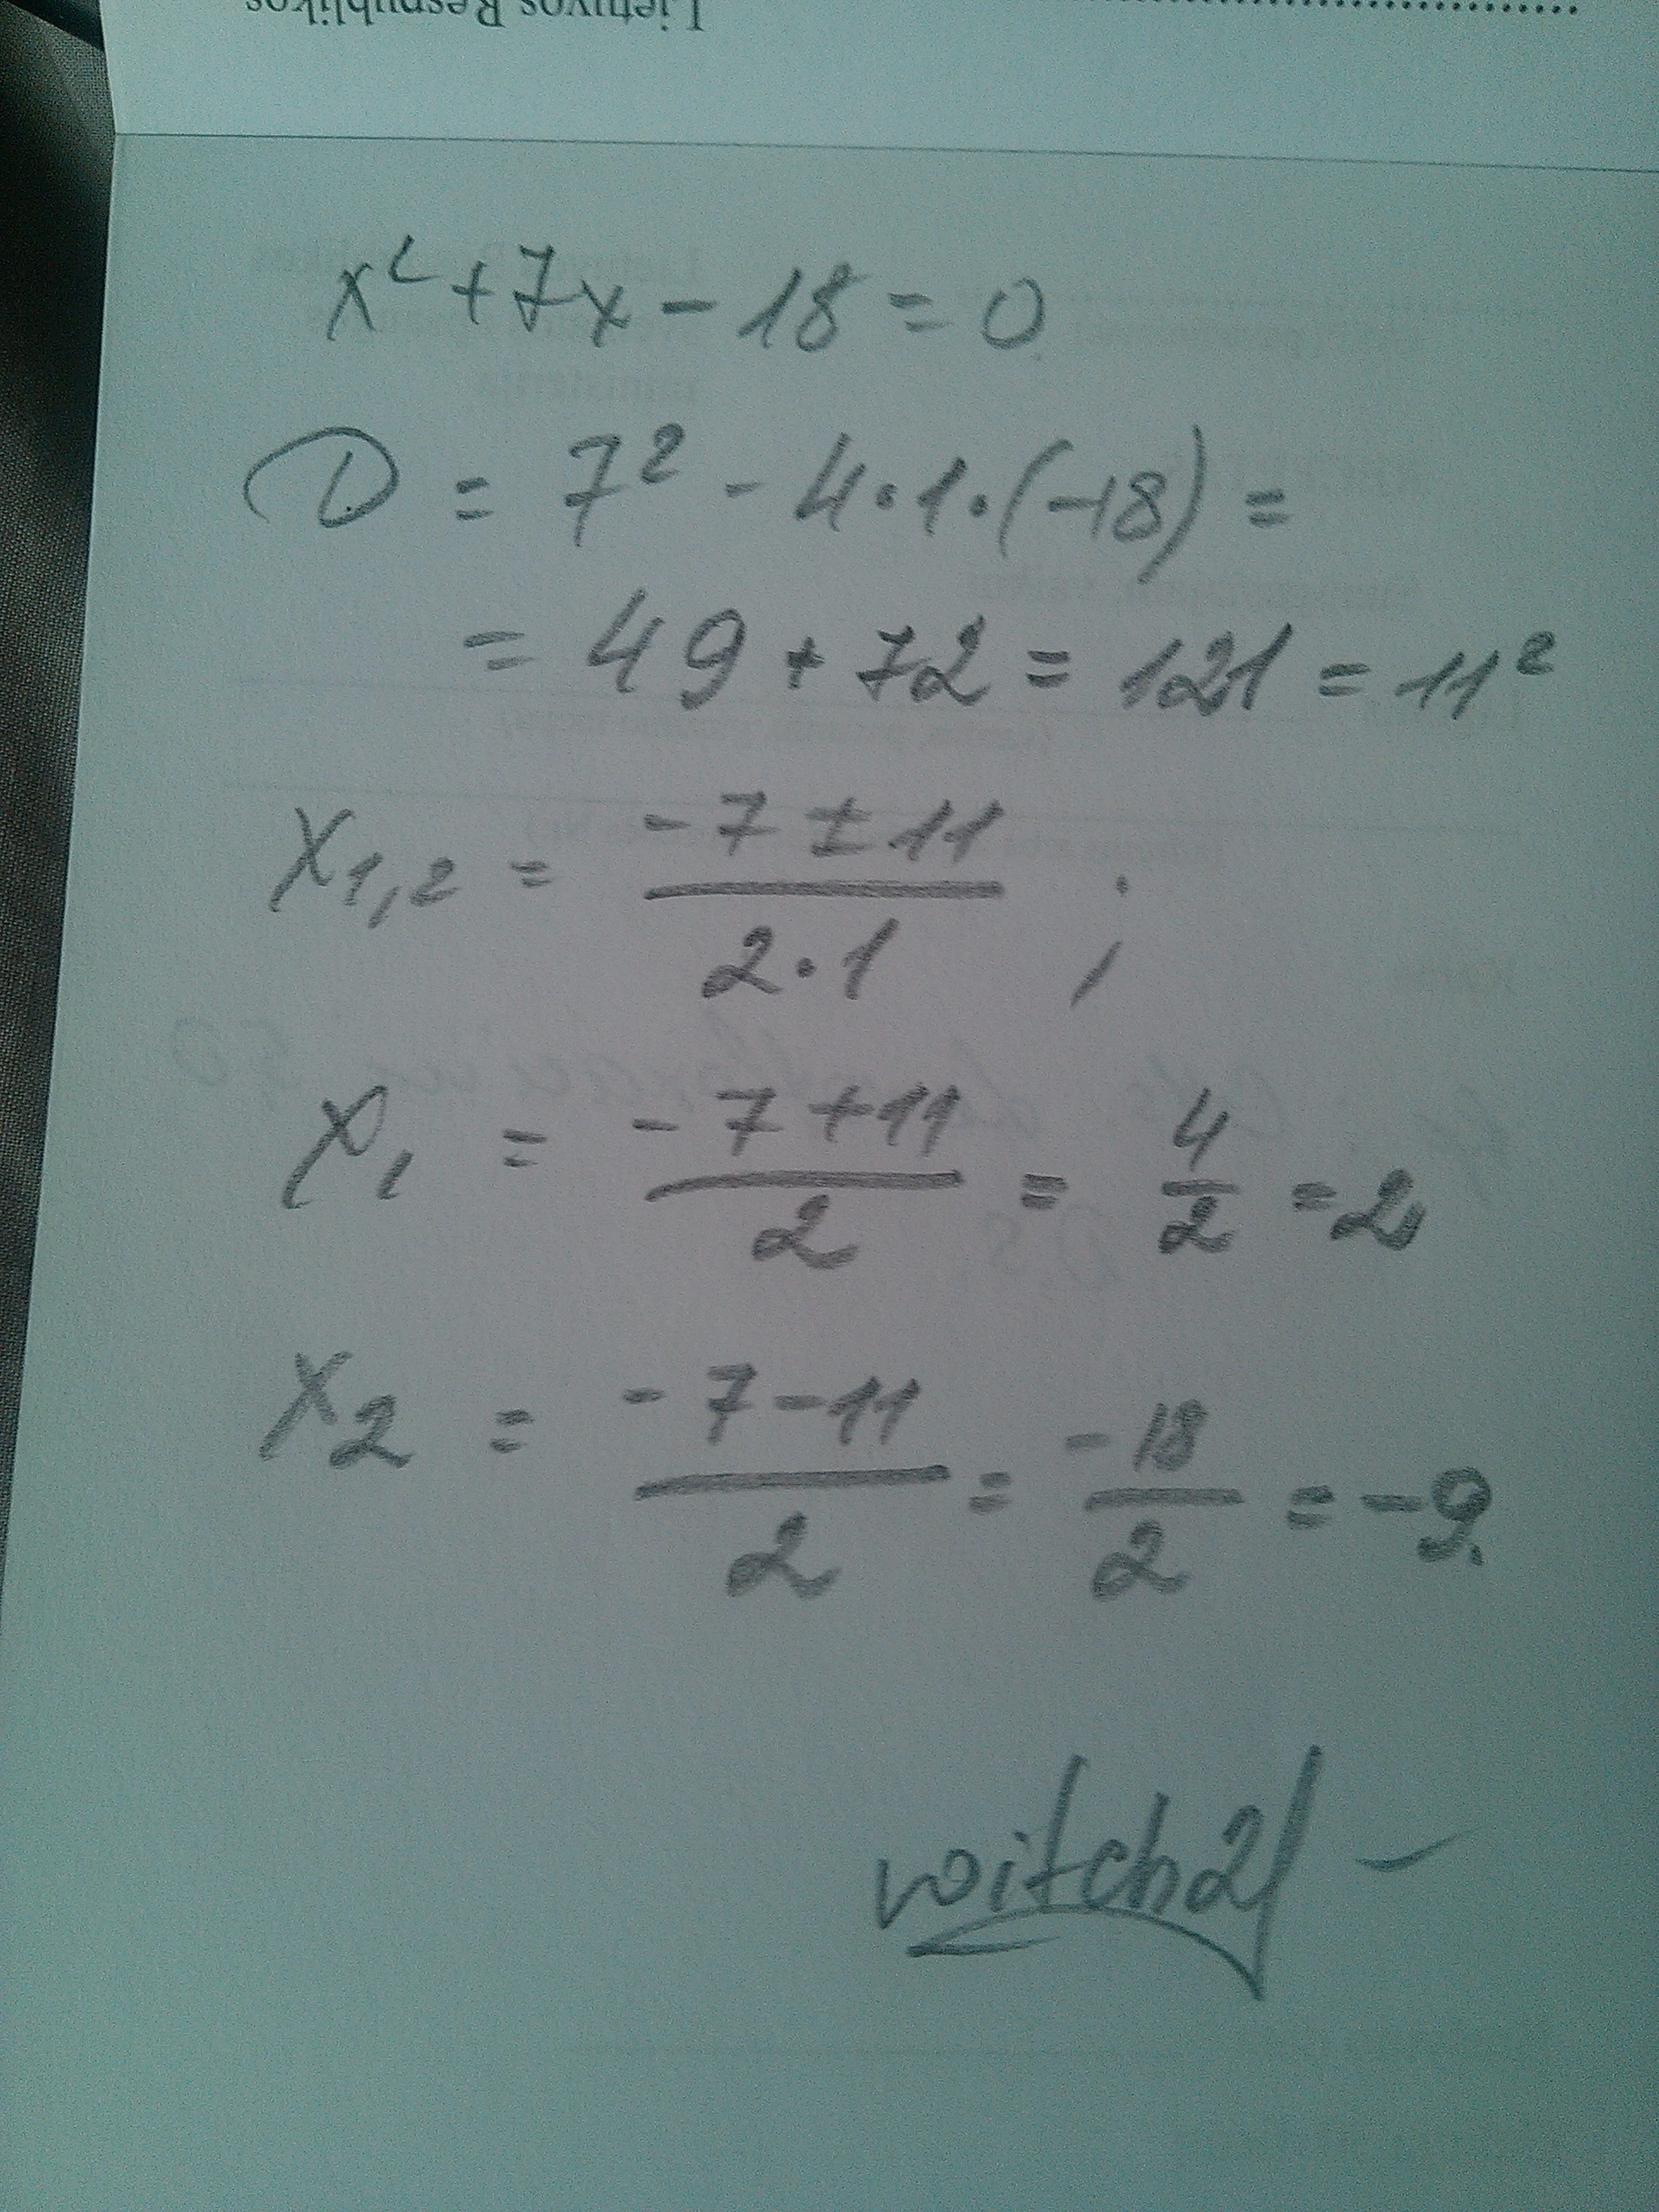 Lietuvos Respublikos
x² + 7x - 18 = 0
D = 7² - 4 · 1 · (-18) =
= 49 + 72 = 121 = 11²
X₁,₂ = (-7 ± 11) / (2 · 1) ;
X₁ = (-7 + 11) / 2 = 4/2 = 2,
X₂ = (-7 - 11) / 2 = -18/2 = -9.
voitch21